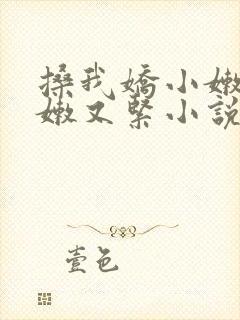 搡我嬌小嫩
嫩又緊小說
壹色